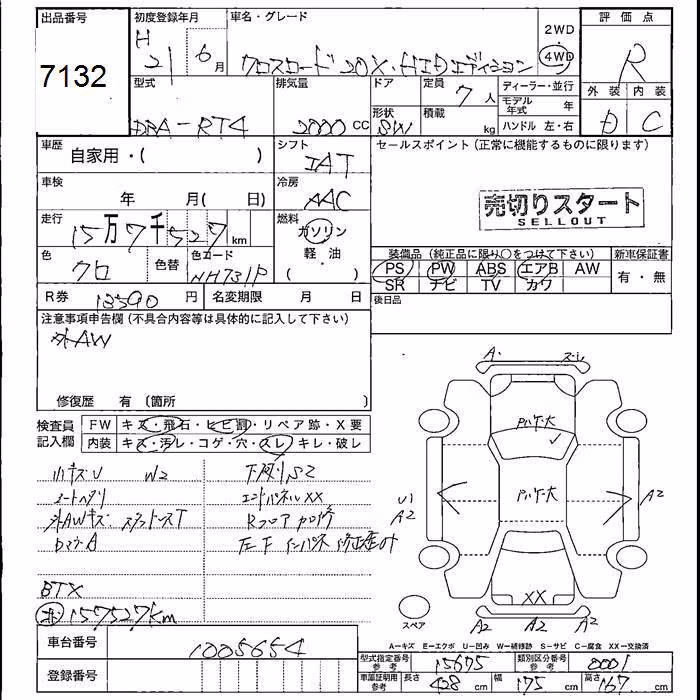 出品番号 初度登録年月 車名・グレード 評価点
7132 H21 6月 クロスロード 20X・HIDエディション 2WD 4WD R
型式 排気量 ドア 定員 7人 ディーラー・並行 外装 内装
形状 積載 モデル年式 年
DBA-RT4 2000cc SW kg ハンドル 左・右 D C
車歴 自家用・( ) シフト IAT セールスポイント (正常に機能するものに限ります)
車検 年 月( 日) 冷房 AAC
売切りスタート
SELLOUT
走行 15万7千527km 燃料 ガソリン 軽・油 ・( )
色 クロ 色替 色コード NH731P
装備品 (純正品に限り○をつけて下さい) 新車保証書
PS PW ABS エアB AW 有・無
SR ナビ TV カワ
R券 13590円 名変期限 月 日 後日品
注意事項申告欄 (不具合内容等は具体的に記入して下さい)
外AW
修復歴 有 〔箇所
検査員記入欄 FW キズ・飛石・ヒビ割・リペア跡・X要
内装 キズ・汚レ・コゲ・穴・スレ・キレ・破レ
小キズU W2 下廻りS2
シートヘタリ エンドパネルXX
外AWキズ Rフロア加修
BTX
157527km
車台番号 1005654
登録番号
A
パリケ大
パリケ大
U1
A2
A2
XX
A2 A2 A2
スペア
A=キズ E=エクボ U=凹み W=補修跡 S=サビ C=腐食 XX=交換済
型式指定番号 参考 15675 類別区分番号 参考 0001
車庫証明用 参考 長さ 428cm 幅 175cm 高さ 167cm